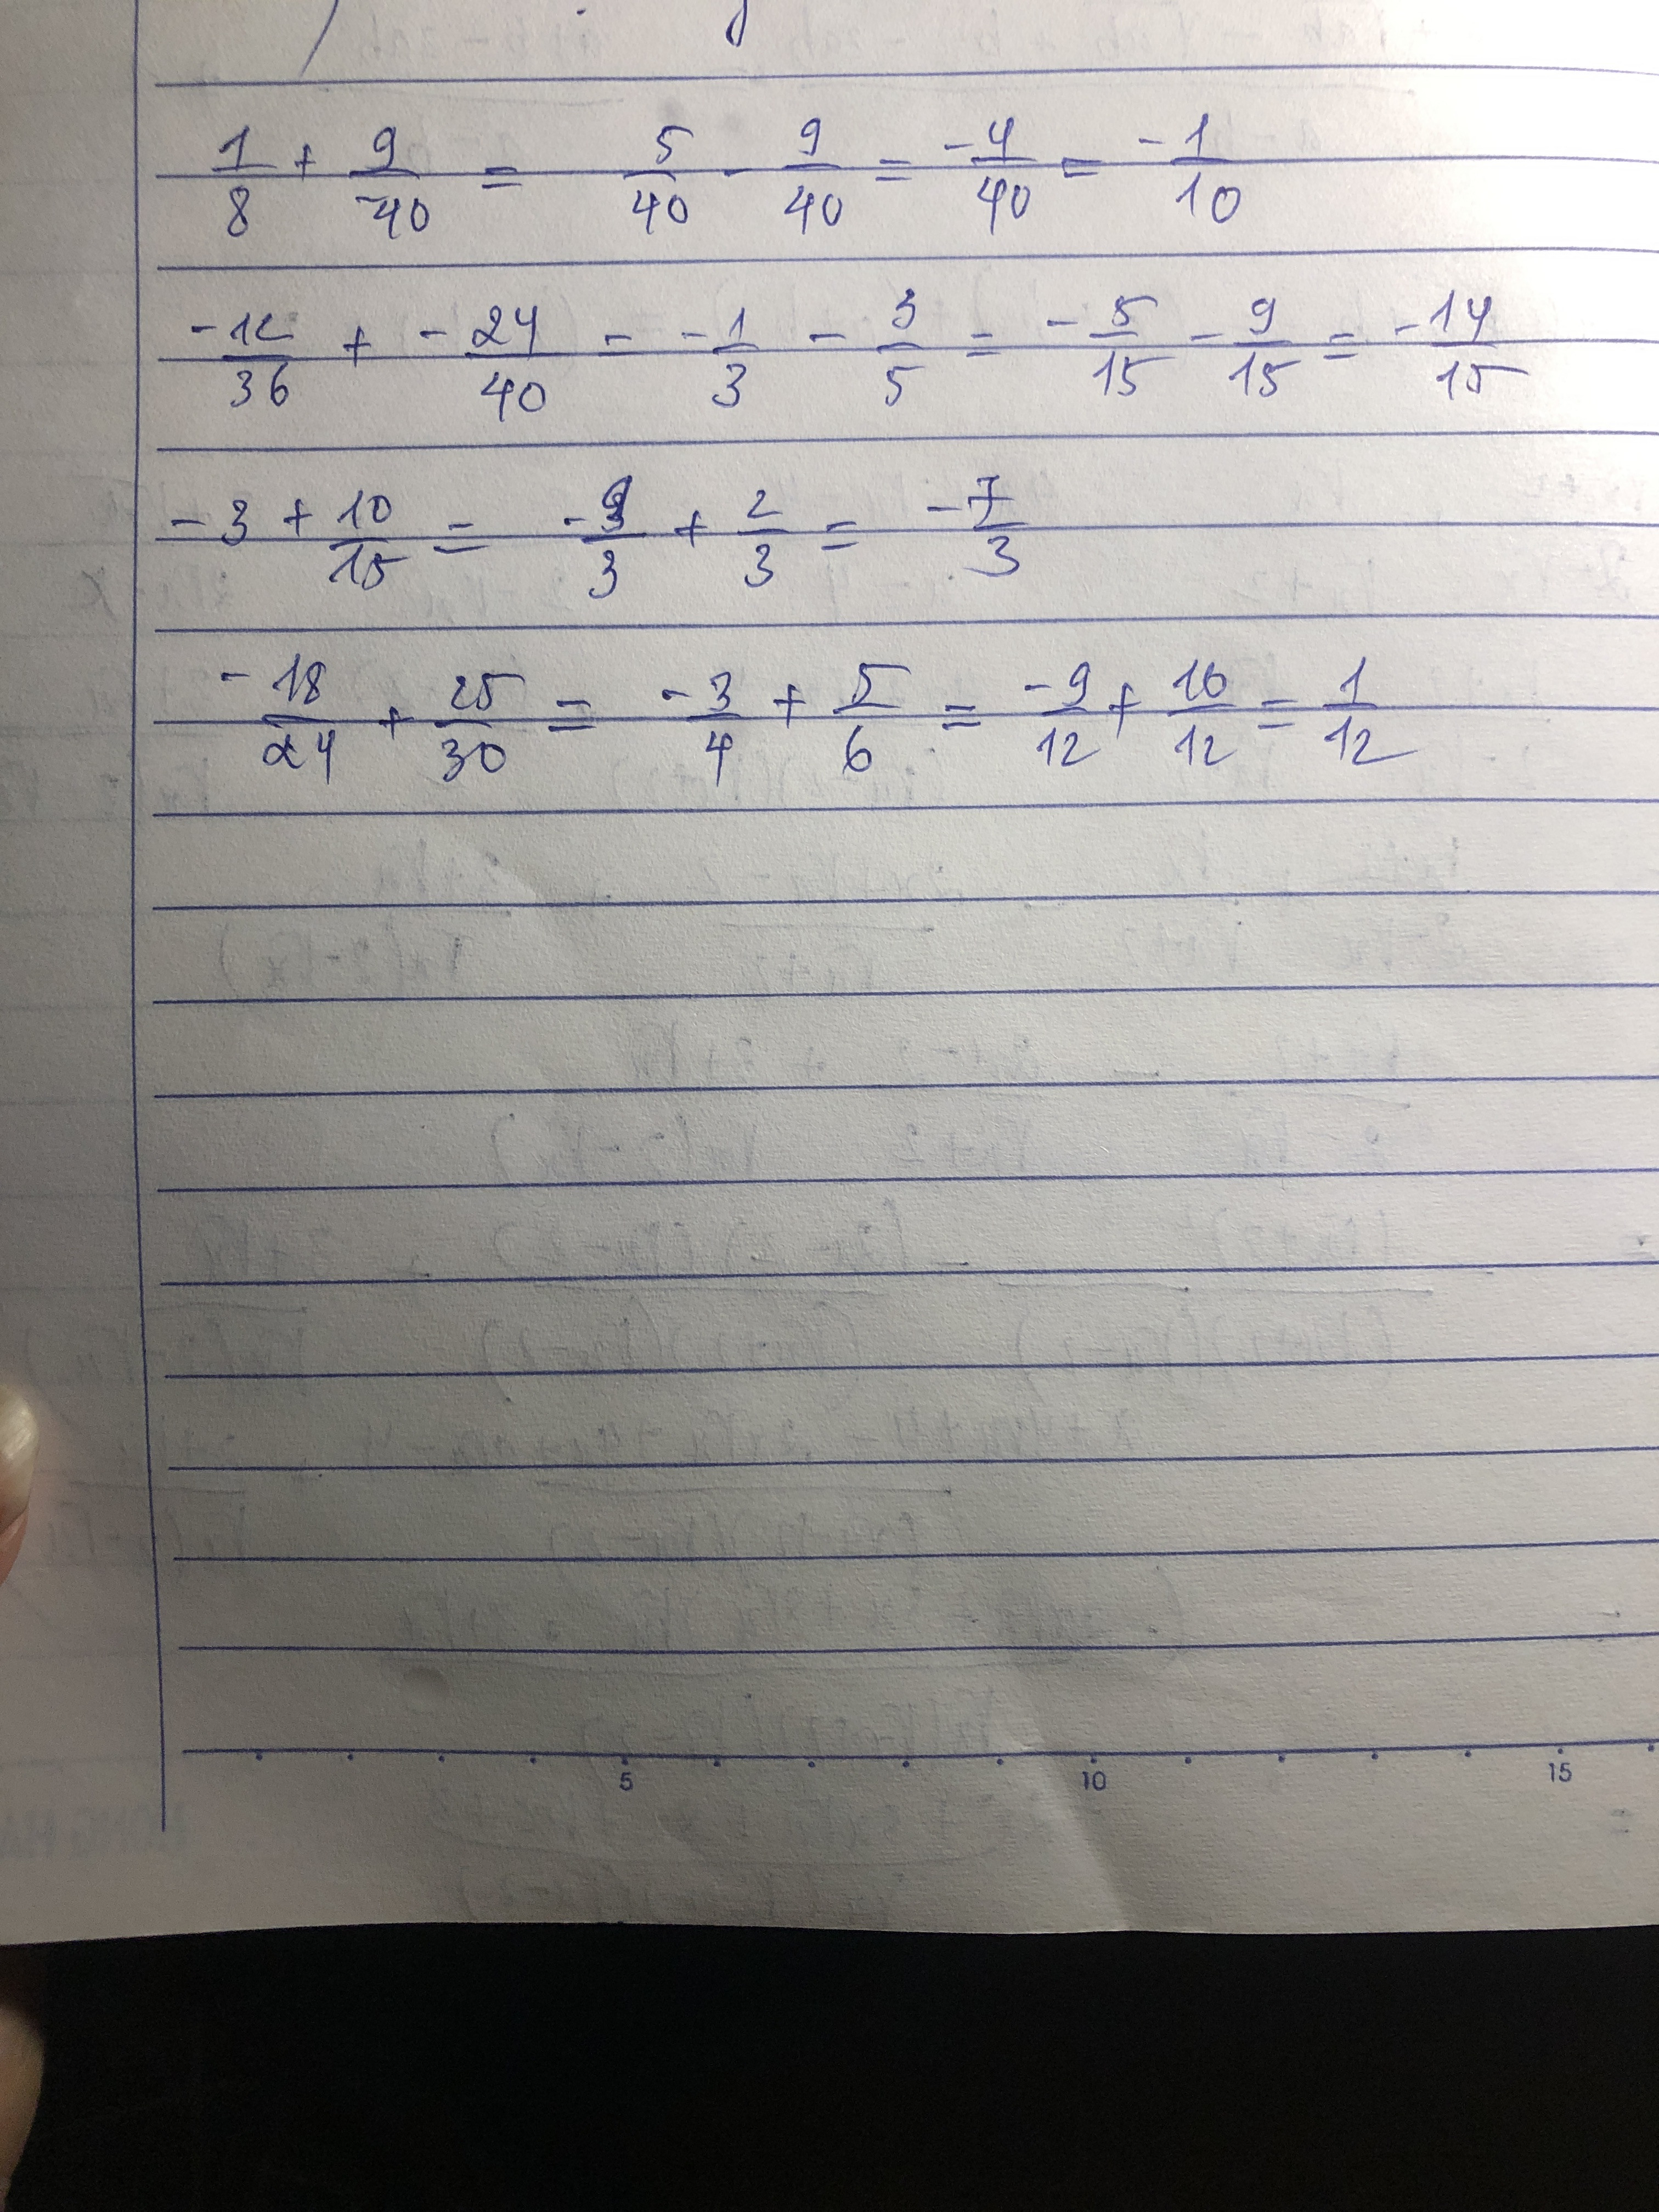 1/8 + 9/-40 = 5/40 - 9/40 = -4/40 = -1/10
-12/36 + -24/40 = -1/3 - 3/5 = -5/15 - 9/15 = -14/15
-3 + 10/15 = -9/3 + 2/3 = -7/3
-18/24 + 25/30 = -3/4 + 5/6 = -9/12 + 10/12 = 1/12
5 10 15